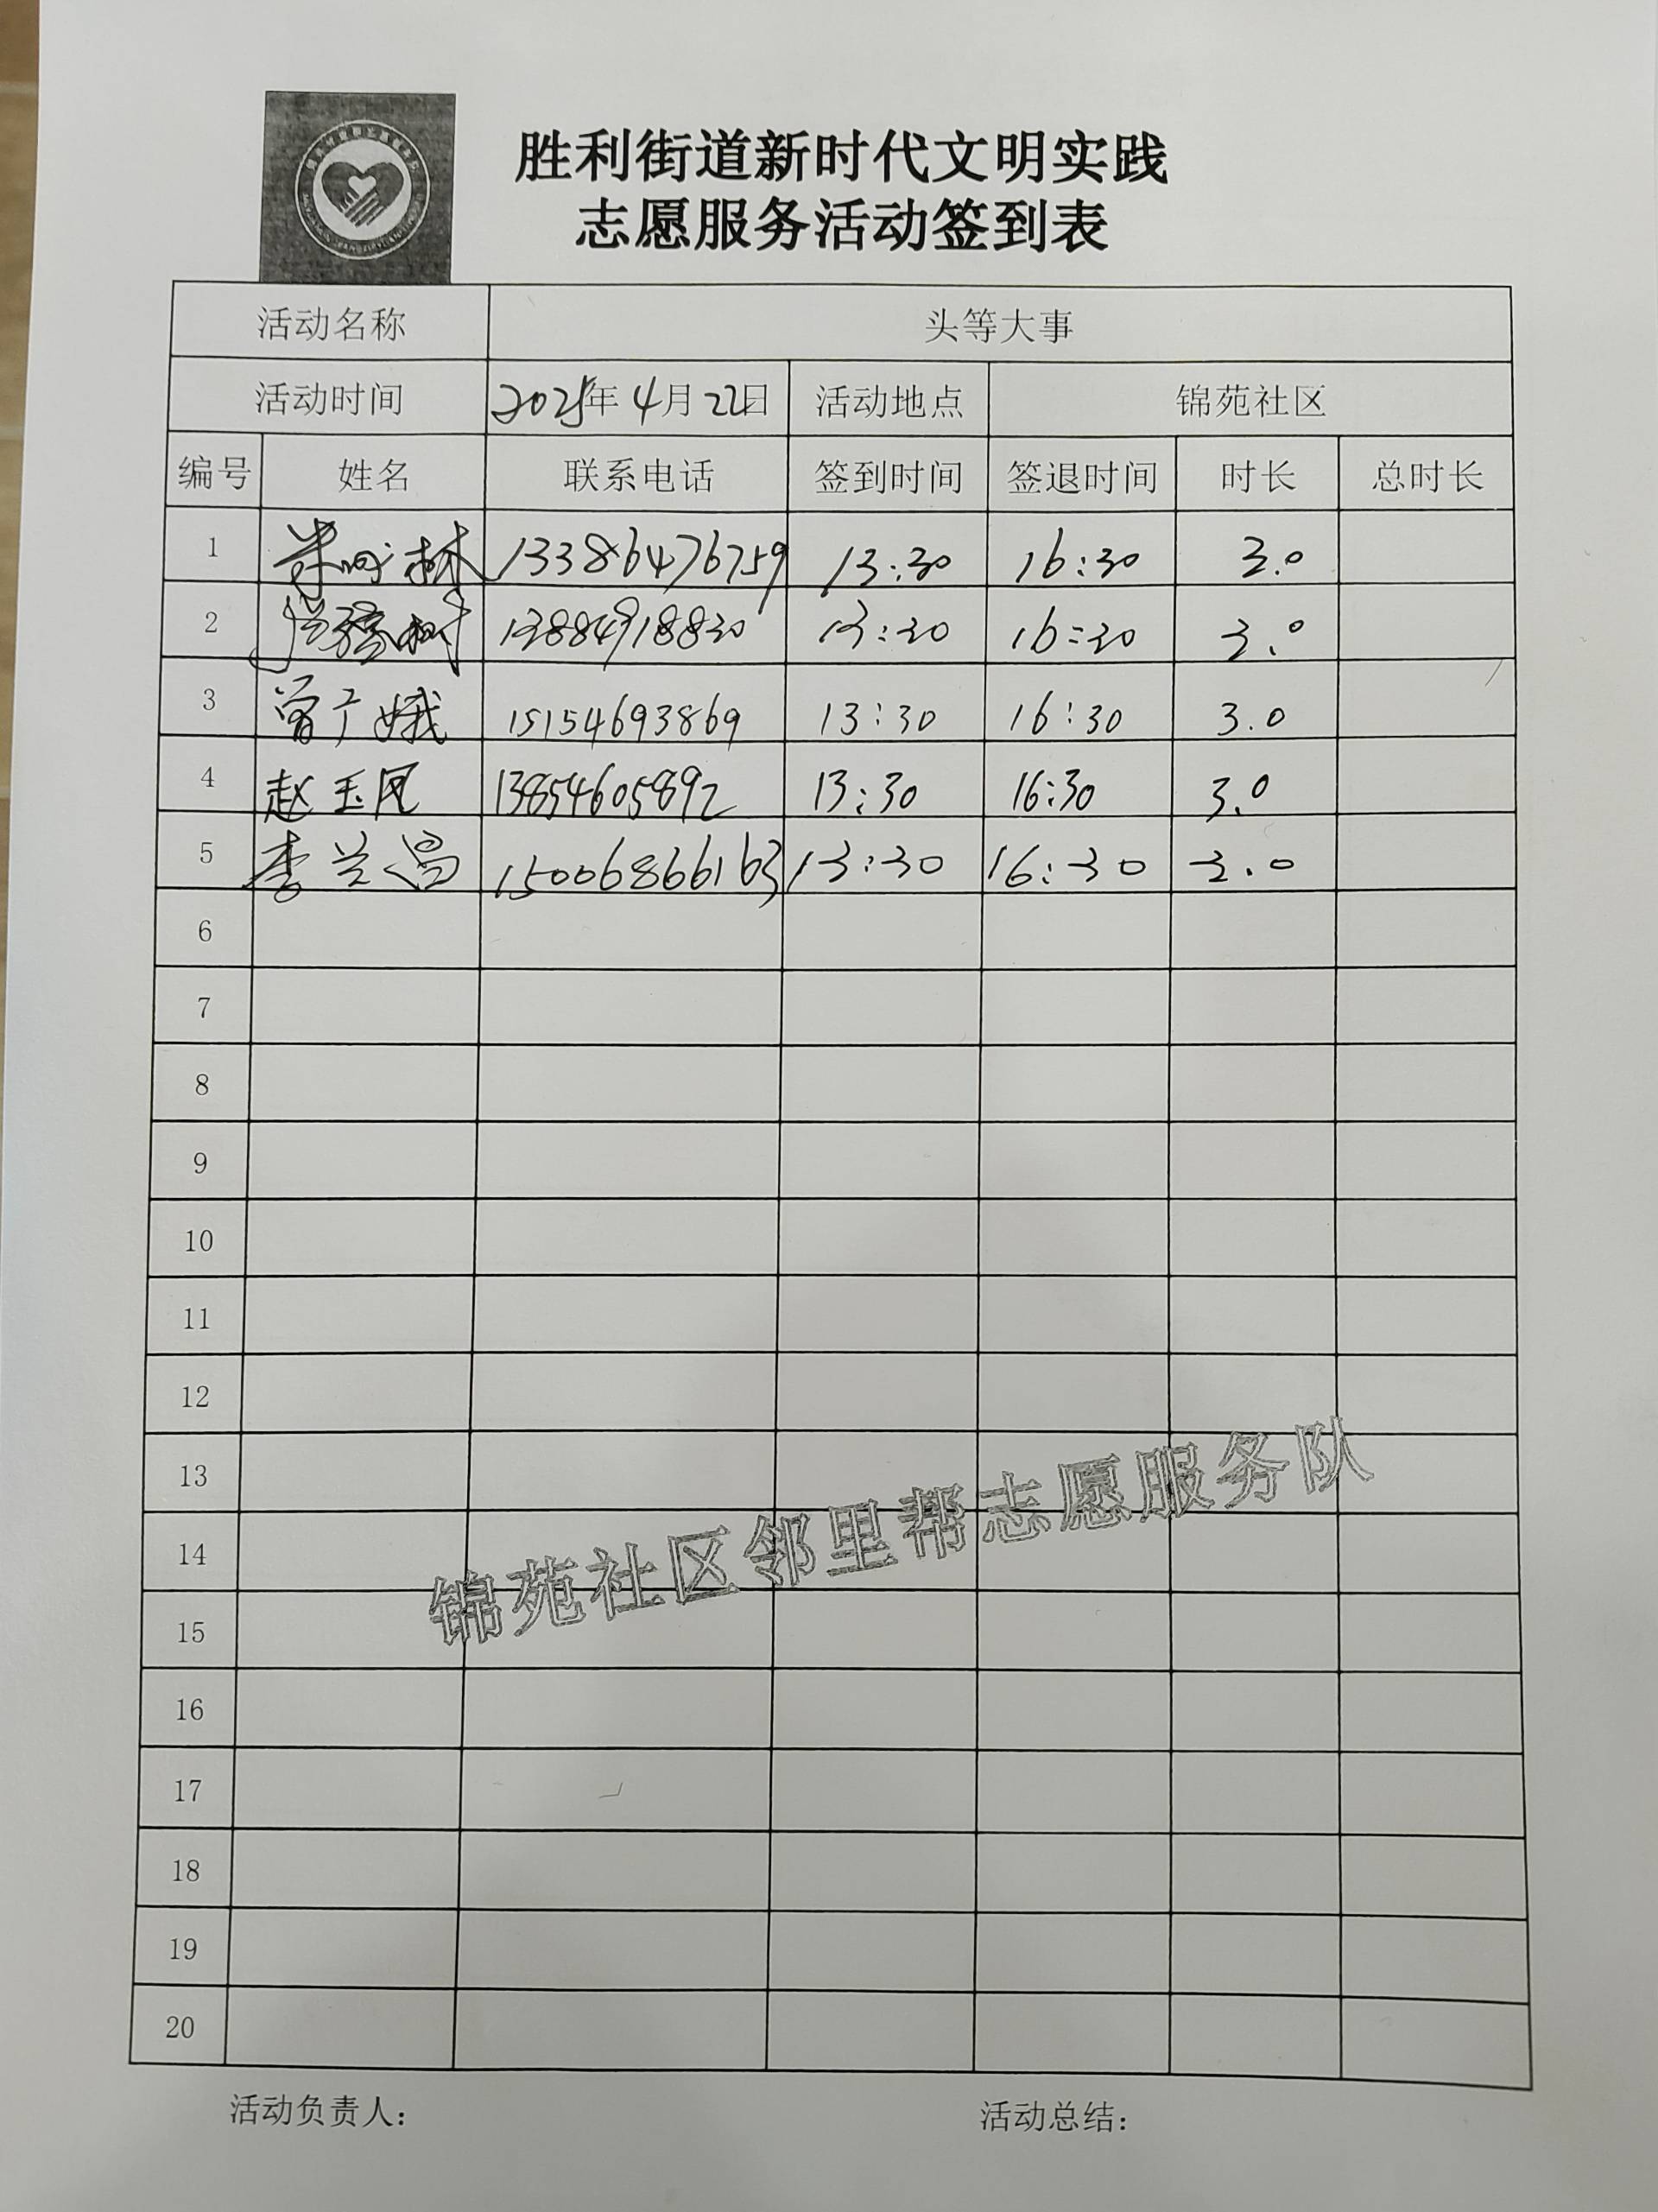 胜利街道新时代文明实践
志愿服务活动签到表
活动名称 头等大事
活动时间 2025年4月22日 活动地点 锦苑社区
编号 姓名 联系电话 签到时间 签退时间 时长 总时长
1 林 13386476759 13:30 16:30 3.0
2 树 13884918830 13:30 16:30 3.0
3 曾广娥 15154693869 13:30 16:30 3.0
4 赵玉凤 13854605892 13:30 16:30 3.0
5 李兰昌 15006866163 13:30 16:30 3.0
6
7
8
9
10
11
12
13
14
15
16
17
18
19
20
锦苑社区邻里帮志愿服务队
活动负责人： 活动总结：